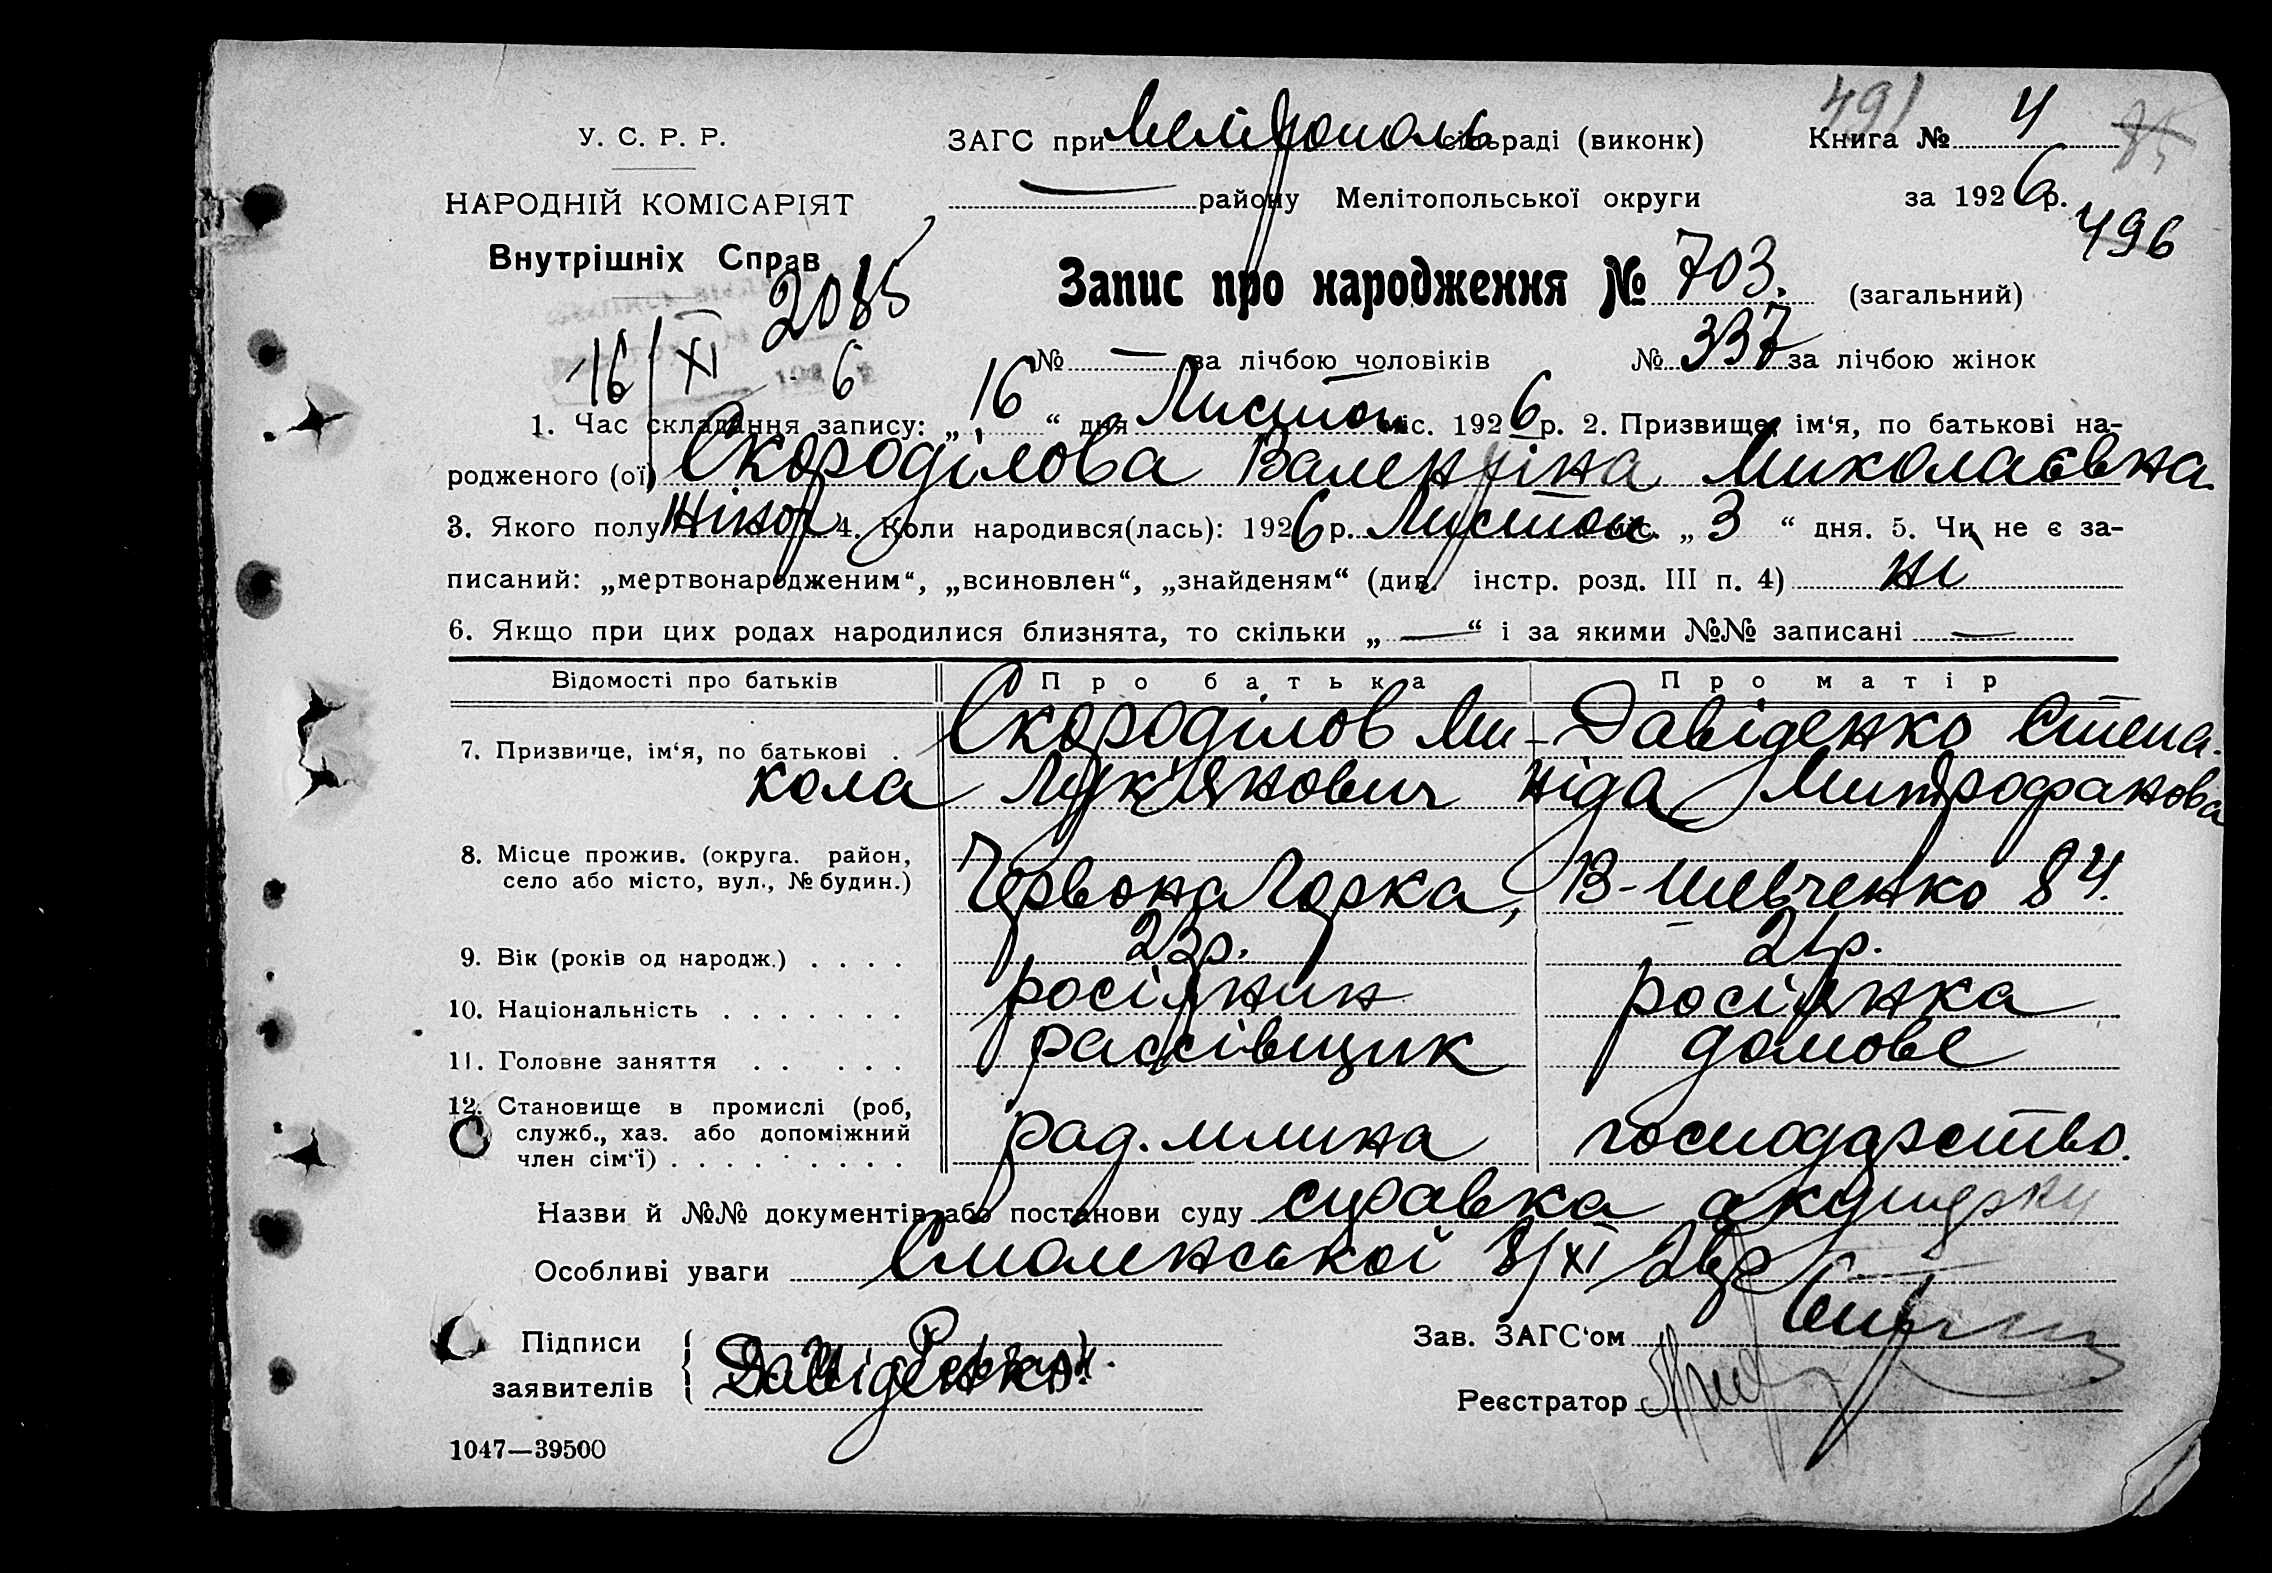 491
У. С. Р. Р. ЗАГС при Мелітополь сільраді (виконк) Книга № 4
НАРОДНІЙ КОМІСАРІЯТ — району Мелітопольської округи за 1926 р.
496
Внутрішніх Справ
2085
Запис про народження № 703. (загальний)
16/XI 6
№ — за лічбою чоловіків № 337 за лічбою жінок
1. Час складання запису: „ 16 “ дня Листоп міс. 1926 р. 2. Призвище, ім‘я, по батькові на-
родженого (ої) Скороділова Валентіна Миколаєвна
3. Якого полу жіноч 4. Коли народився(лась): 1926 р. Листоп міс. „ 3 “ дня. 5. Чи не є за-
писаний: „мертвонародженим“, „всиновлен“, „знайденям“ (див. інстр. розд. III п. 4) ні
6. Якщо при цих родах народилися близнята, то скільки „ — “ і за якими №№ записані —
Відомості про батьків Про батька Про матір
7. Призвище, ім‘я, по батькові . Скороділов Ми- Давіденко Степа-
кола Лук‘янович ніда Митрофанова
8. Місце прожив. (округа. район,
село або місто, вул., № будин.) Червона Горка, В-Шевченко 84.
9. Вік (років од народж.) . . . . 23р. 21р.
10. Національність . . . . . . . росіянин росіянка
11. Головне заняття . . . . . рассівщик домове
12. Становище в промислі (роб,
служб., хаз. або допоміжний рад. млина господарство.
член сім‘ї) . . . . . . . . .
Назви й №№ документів або постанови суду справка акушерки
Особливі уваги Смоленської 8/XI 26р
Підписи Зав. ЗАГС‘ом
заявителів Давіденко
Реєстратор
1047—39500